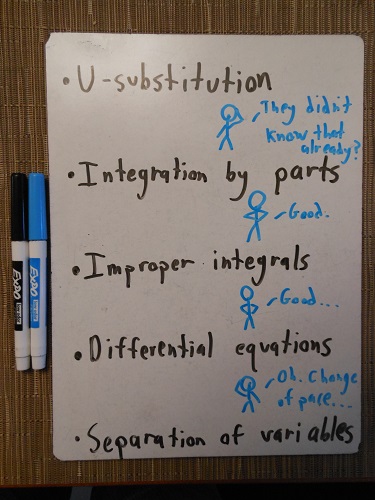 • U-substitution
They didn't
know that
already?
• Integration by parts
Good.
• Improper integrals
Good...
• Differential equations
Oh. Change
of pace...
• Separation of variables
EXPO
EXPO